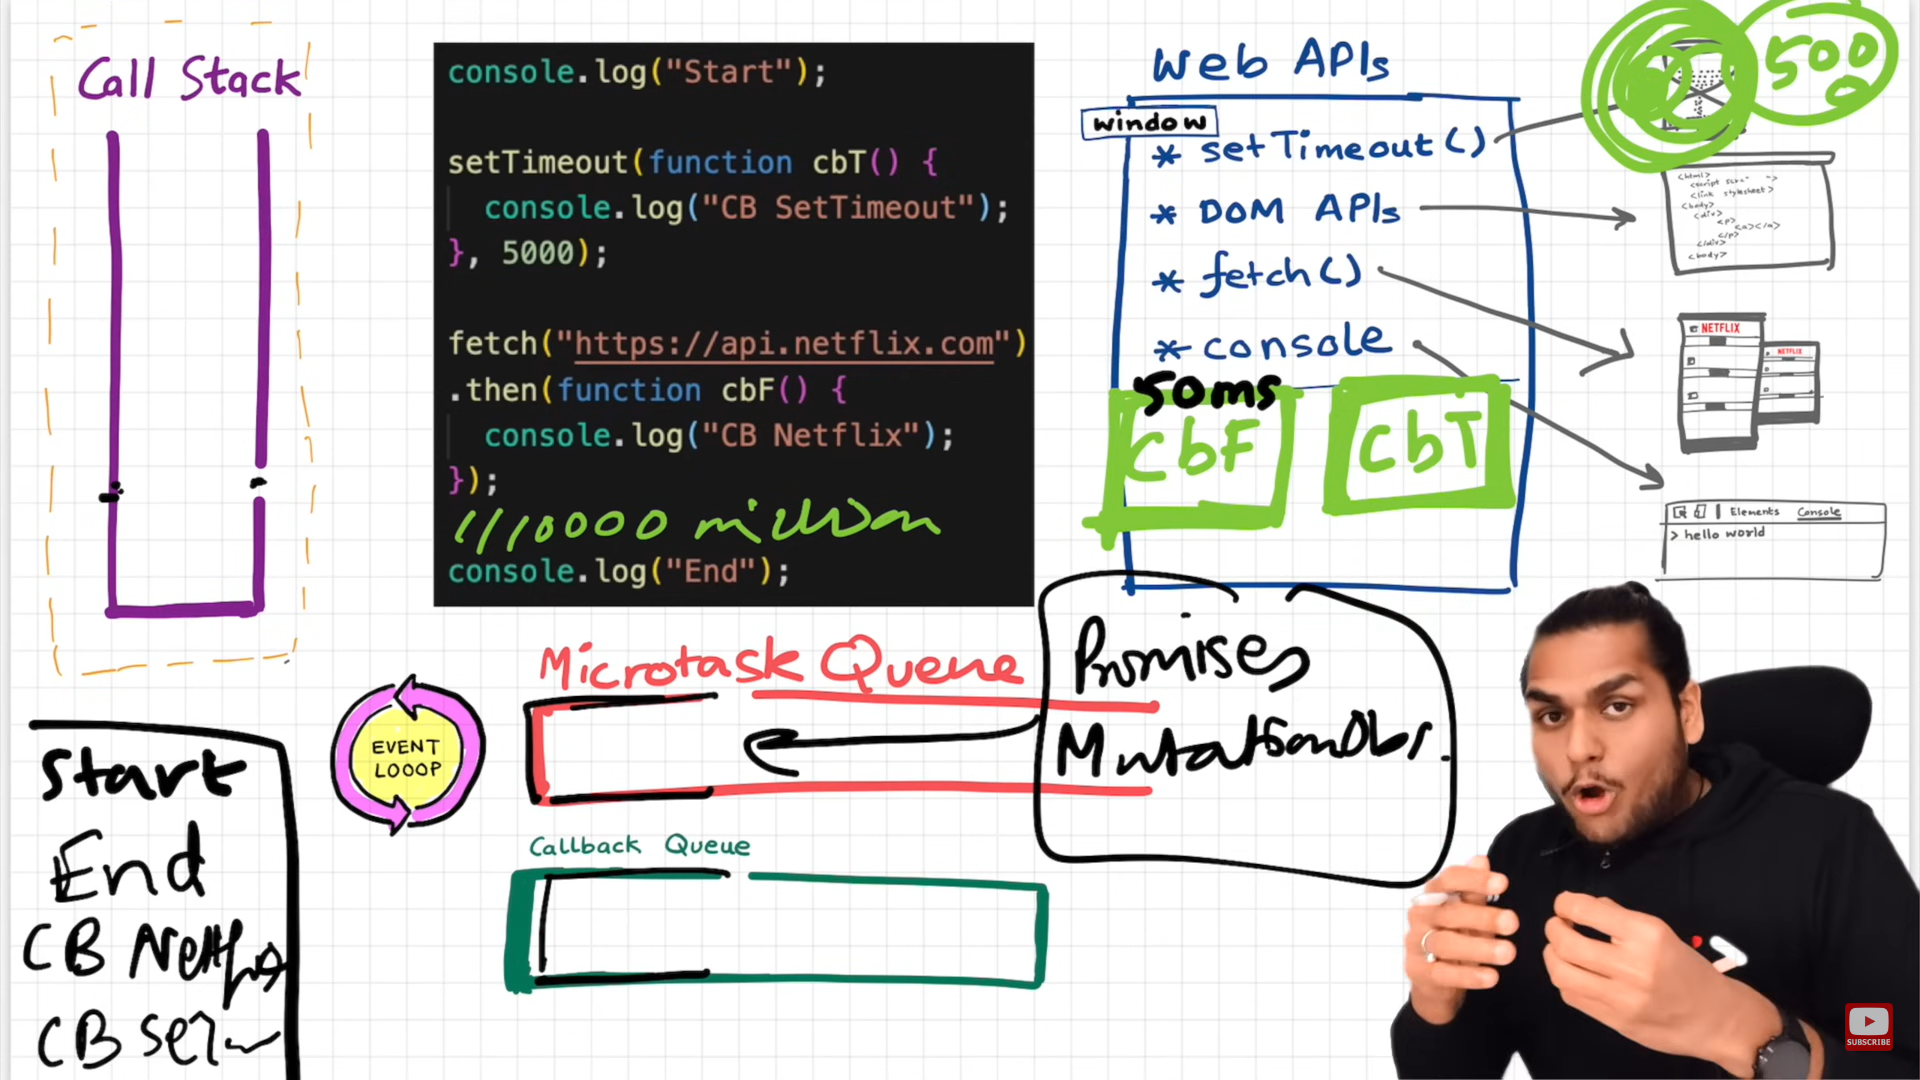 Call Stack
console.log("Start");
setTimeout(function cbT() {
console.log("CB SetTimeout");
}, 5000);
fetch("https://api.netflix.com")
.then(function cbF() {
console.log("CB Netflix");
});
1/10000 million
console.log("End");
Web APIs
window
* setTimeout()
* DOM APIs
* fetch()
* console
50ms
CbF
CbT
5000
<html>
<link stylesheet>
<body>
<div>
<p>
<a></a>
</p>
</div>
<body>
NETFLIX
NETFLIX
Elements Console
> hello world
Microtask Queue
Promises
EVENT
LOOOP
Callback Queue
Start
End
CB
CB
SUBSCRIBE